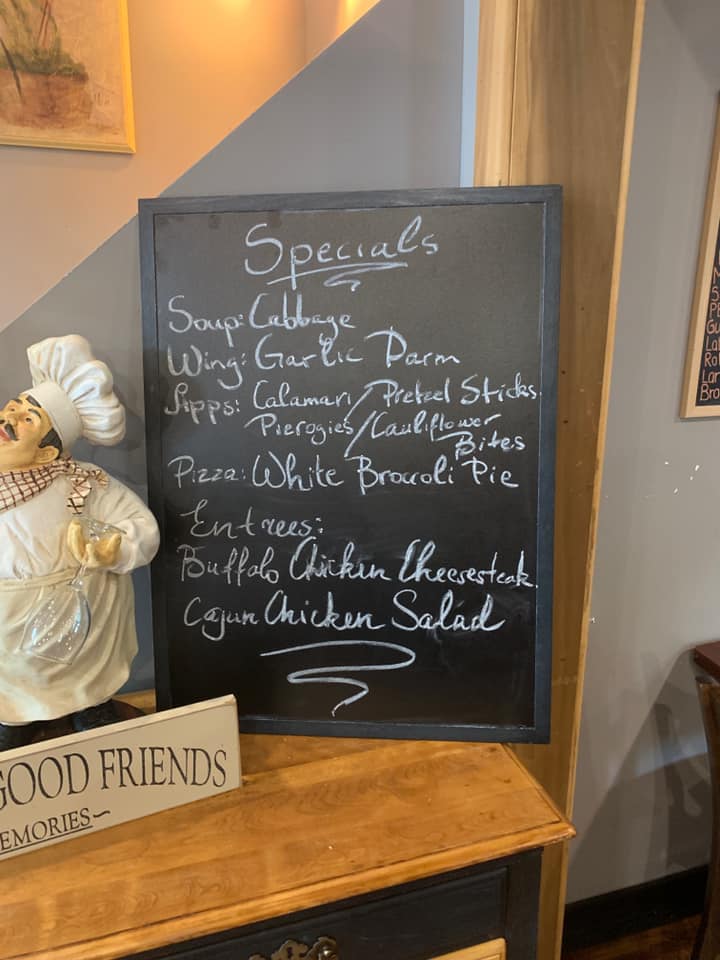 Specials
Soup: Cabbage
Wing: Garlic Parm
Apps: Calamari / Pretzel Sticks
Pierogies / Cauliflower
Bites
Pizza: White Broccoli Pie
Entrees:
Buffalo Chicken Cheesesteak
Cajun Chicken Salad
GOOD FRIENDS
EMORIES~